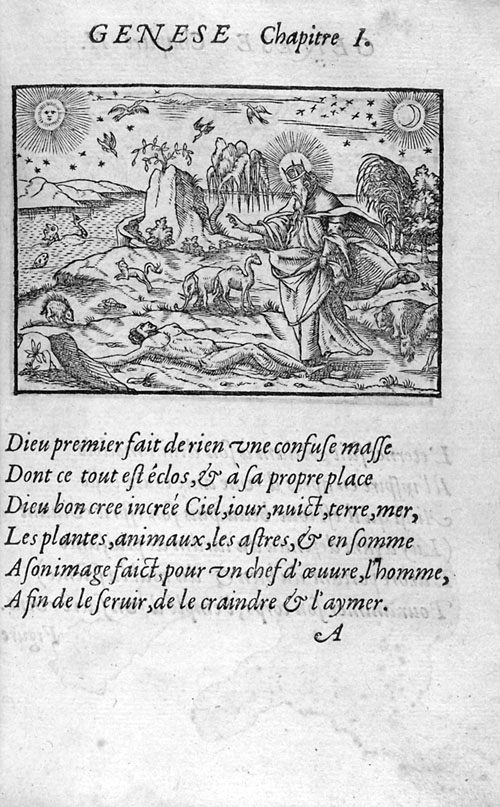 GENESE Chapitre I.
Dieu premier fait de rien vne confuse masse
Dont ce tout est éclos, & à sa propre place
Dieu bon cree increé Ciel, iour, nuict, terre, mer,
Les plantes, animaux, les astres, & en somme
A son image faict, pour vn chef d'œuure, l'homme,
A fin de le seruir, de le craindre & l'aymer.
A